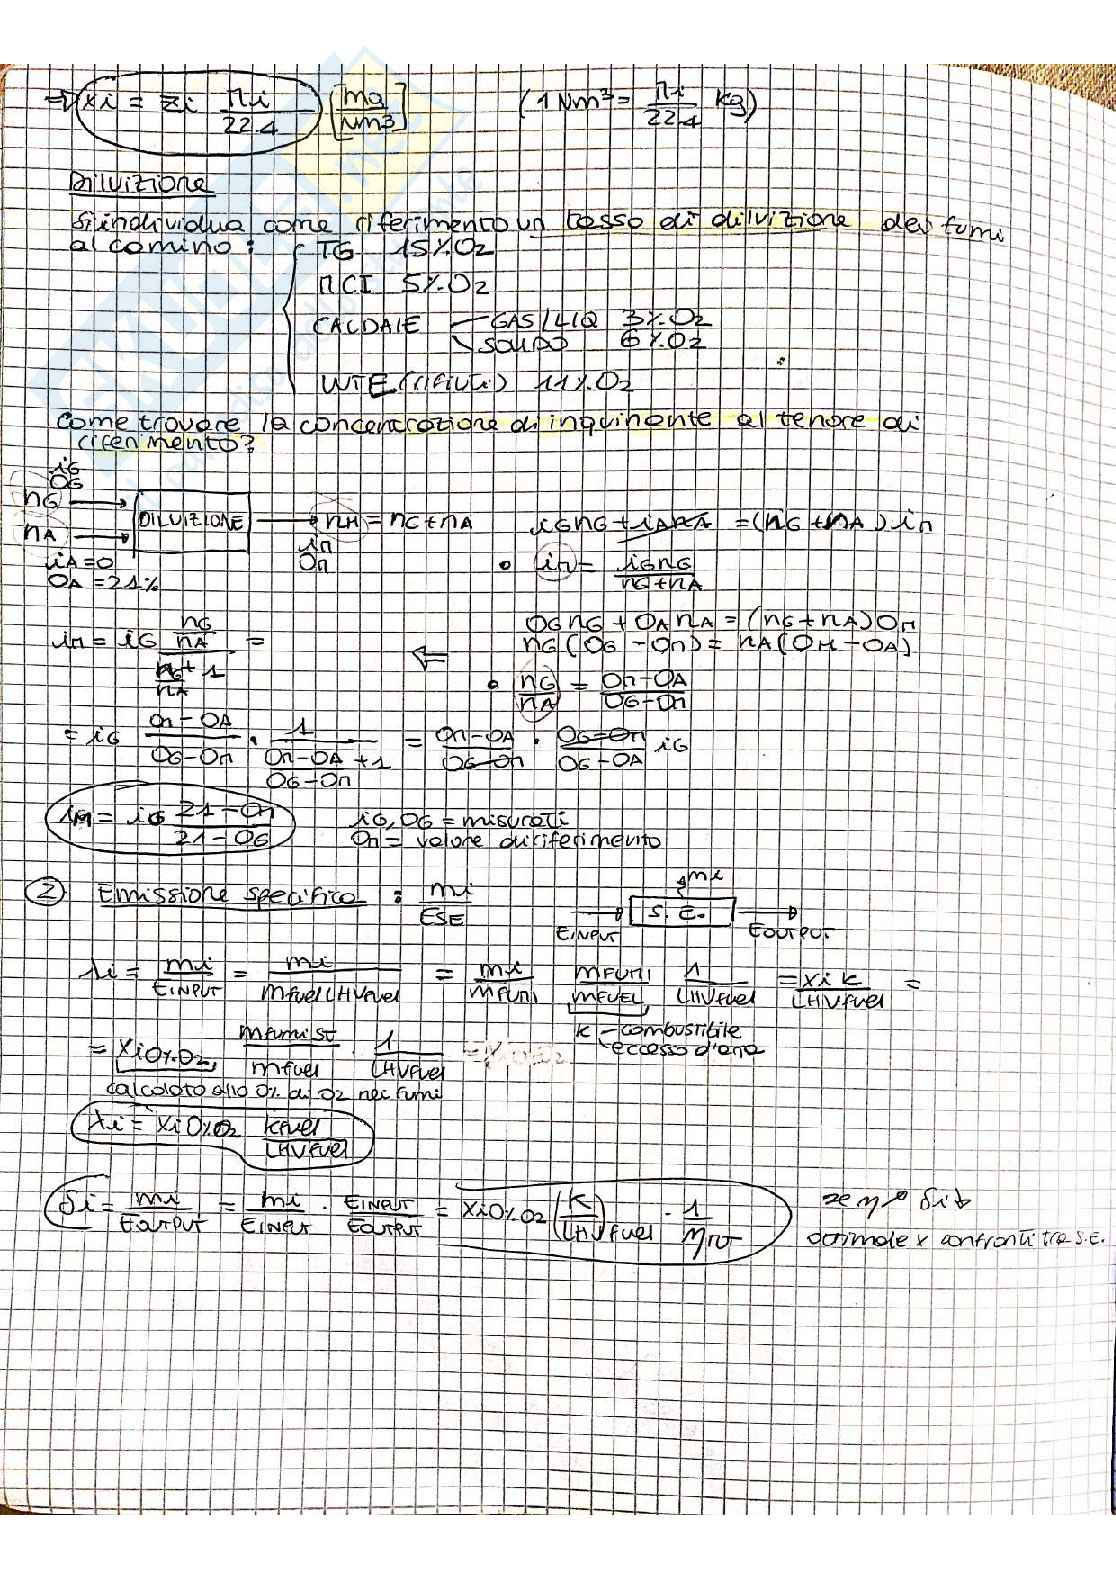 ⇒ xi = zi Mi/22.4 [mg/Nm3] (1 Nm³ = Mi/22.4 kg)
DILUIZIONE
Si individua come riferimento un tasso di diluizione dei fumi
al camino: TG 15% O2
MCI 5% O2
CALDAIE GAS/LIQ 3% O2
SOLIDO 6% O2
WTE (rifiuti) 11% O2
Come trovare la concentrazione di inquinante al tenore di
riferimento?
iG
OG
nG
nA
iA=0
OA=21%
DILUIZIONE
nM = nG+nA
iM
OM
iGnG + iAnA = (nG+nA) iM
• iM = iGnG/(nG+nA)
OGnG + OAnA = (nG+nA)OM
nG(OG-OM) = nA(OM-OA)
• nG/nA = (OM-OA)/(OG-OM)
⇐
iM = iG (nG/nA)/(nG/nA + 1) =
= iG (OM-OA)/(OG-OM) · 1/((OM-OA)/(OG-OM) + 1) = (OM-OA)/(OG-OM) · (OG-OM)/(OG-OA) iG
iM = iG (21-OM)/(21-OG)
iG, OG = misurati
OM = valore di riferimento
② Emissione specifica: mi/ESE
mi
S.E.
EINPUT
EOUTPUT
λi = mi/EINPUT = mi/(mfuel LHVfuel) = mi/mFUMI mFUMI/mFUEL 1/LHVfuel = xi k/LHVfuel =
k - combustibile
eccesso d'aria
= xi0%O2 mfumist/mfuel · 1/LHVfuel
calcolato allo 0% di O2 nei fumi
λi = xi0%O2 kfuel/LHVfuel
δi = mi/EOUTPUT = mi/EINPUT · EINPUT/EOUTPUT = xi0%O2 (k/LHVfuel) · 1/η
se η↗ δi↓
ottimale x confronti tra S.E.